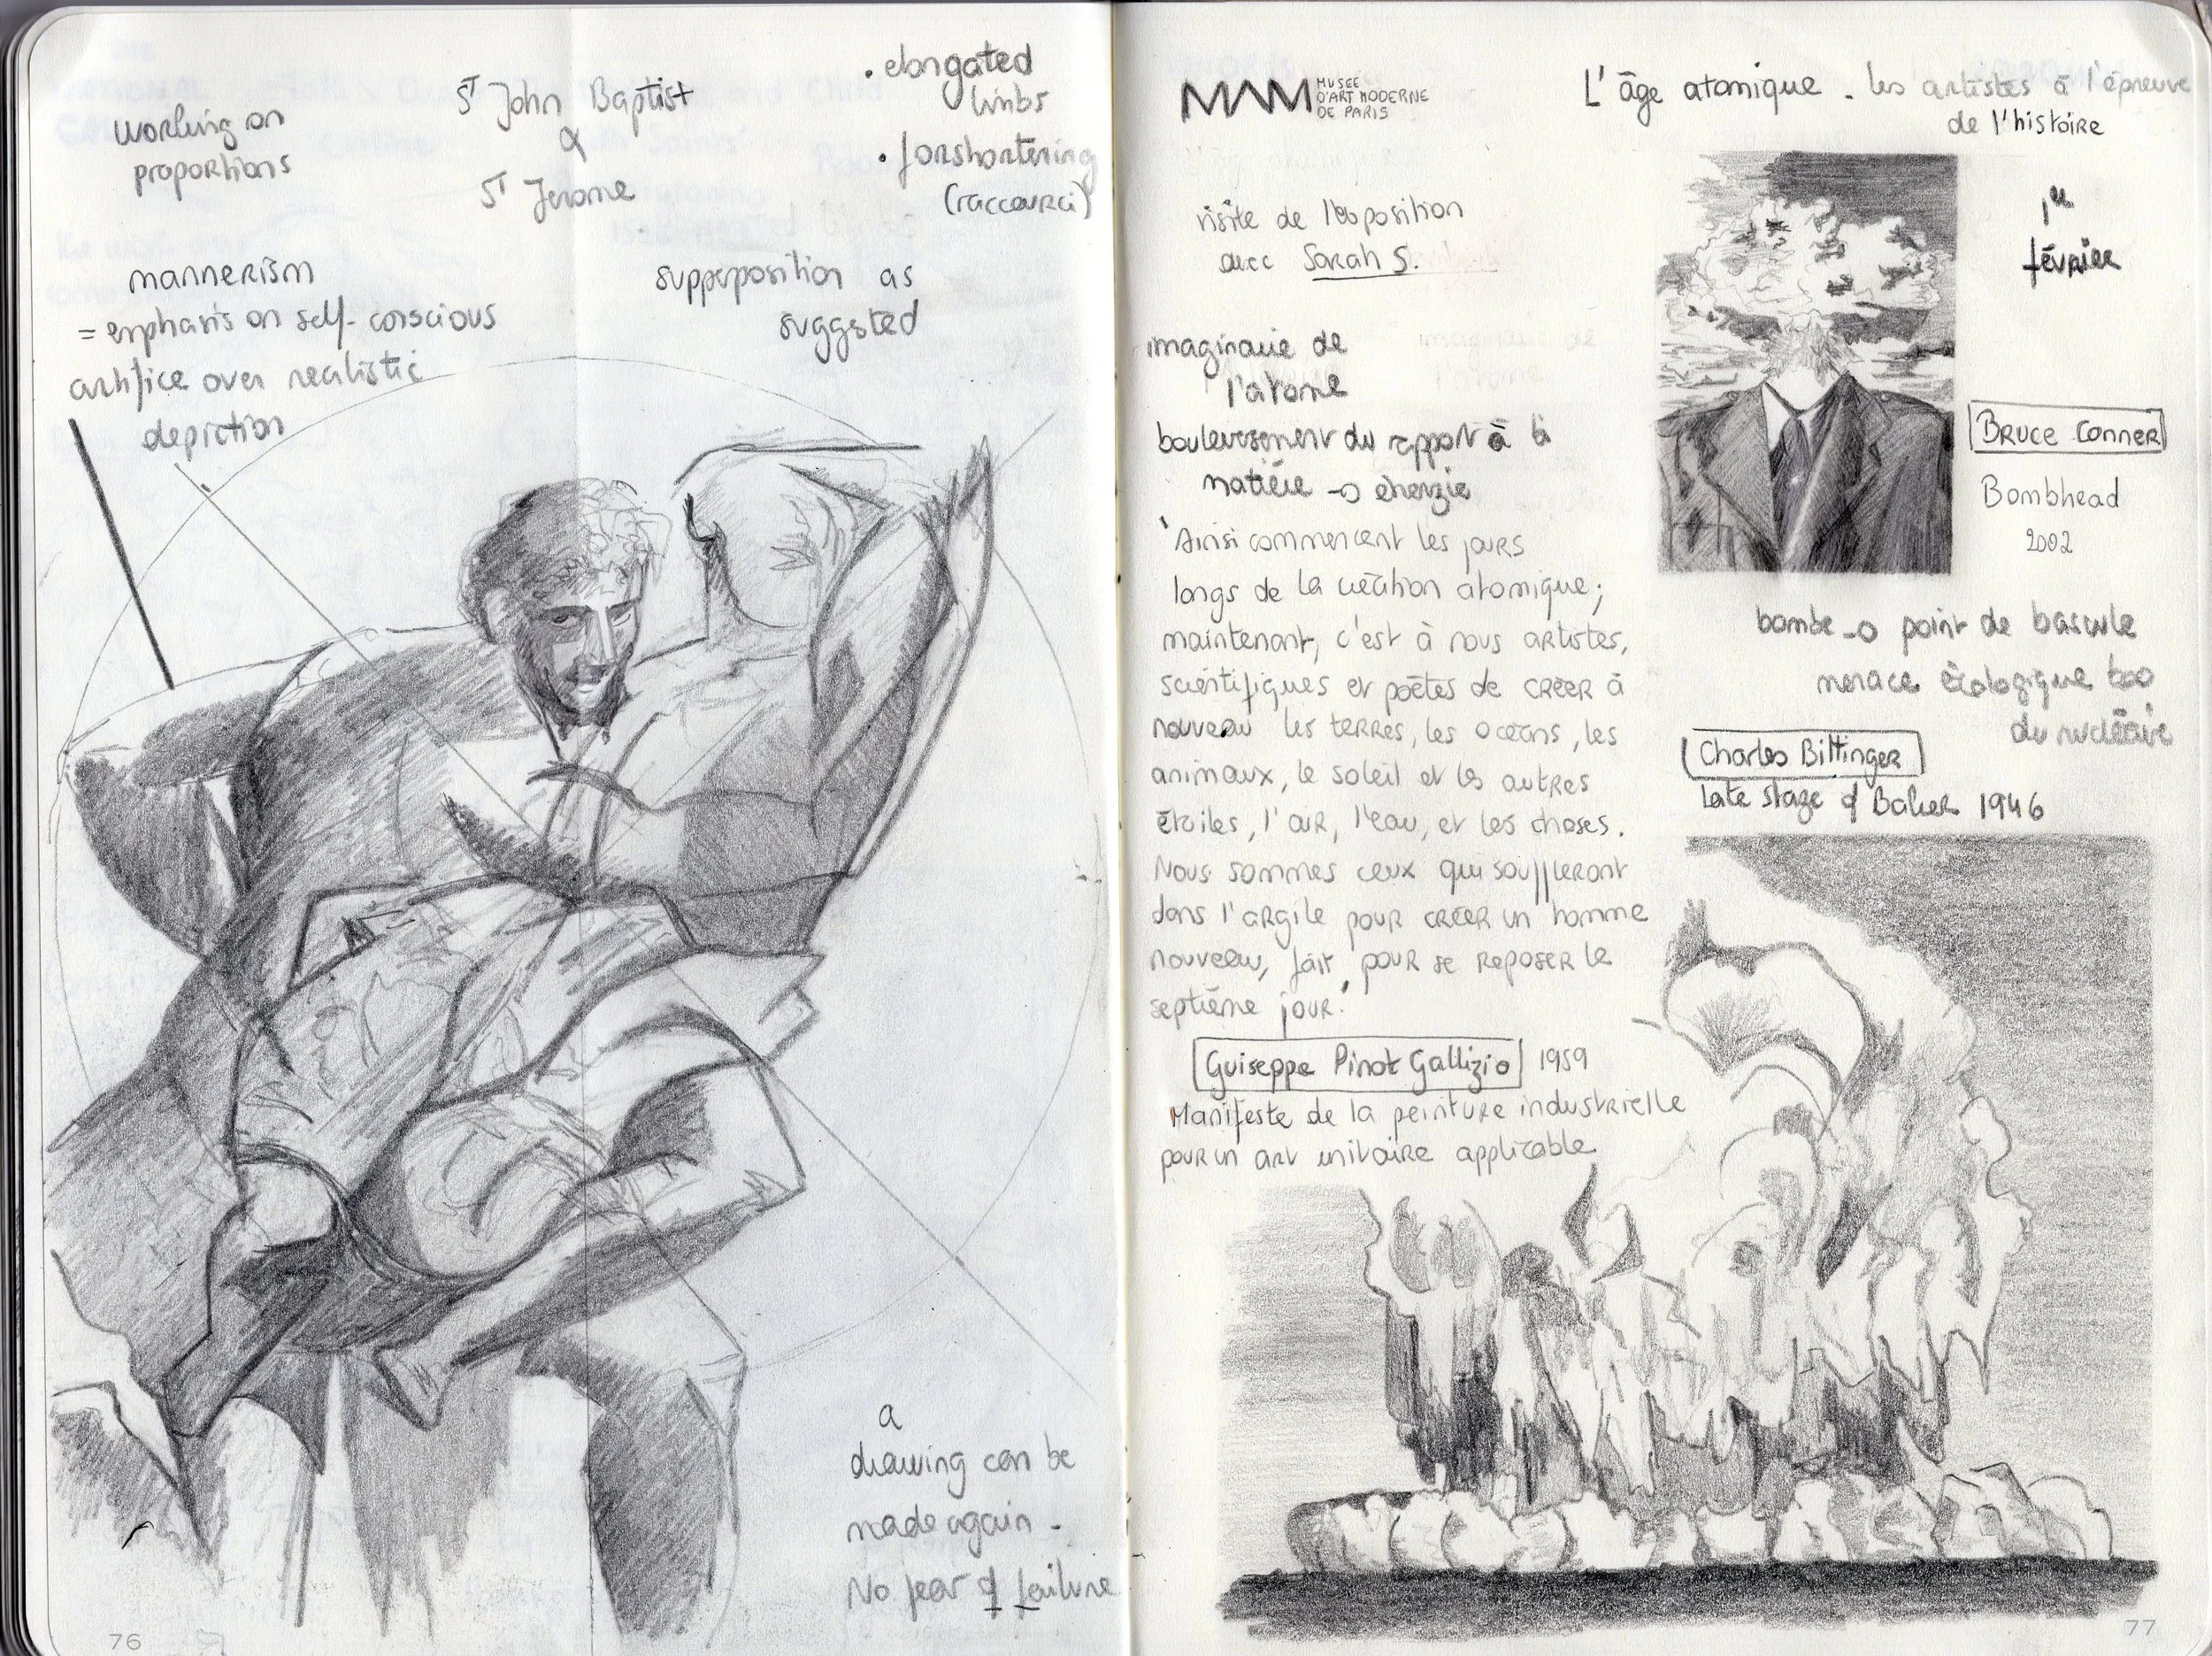 working on
proportions
ST John Baptist
&
ST Jerome
• elongated
limbs
• forshortening
(raccourci)
mannerism
= emphasis on self-conscious
artifice over realistic
depiction
supperposition as
suggsted
a
drawing can be
made again -
No fear of failure
76
MAM MUSEE
D'ART MODERNE
DE PARIS
L'âge atomique - les artistes à l'épreuve
de l'histoire
visite de l'exposition
avec Sarah S.
1er
février
imaginaire de
l'atome
bouleversement du rapport à la
matière → énergie
Bruce Conner
Bombhead
2002
'Ainsi commencent les jours
longs de la création atomique;
maintenant, c'est à nous artistes,
scientifiques et poètes de créer à
nouveau les terres, les océans, les
animaux, le soleil et les autres
étoiles, l'air, l'eau, et les choses.
Nous sommes ceux qui souffleront
dans l'argile pour créer un homme
nouveau, fait pour se reposer le
septième jour.'
Guiseppe Pinot Gallizio 1959
Manifeste de la peinture industrielle
pour un art unitaire applicable
bombe → point de bascule
menace écologique
du nucléaire
Charles Bittinger
Late stage of Baker 1946
77